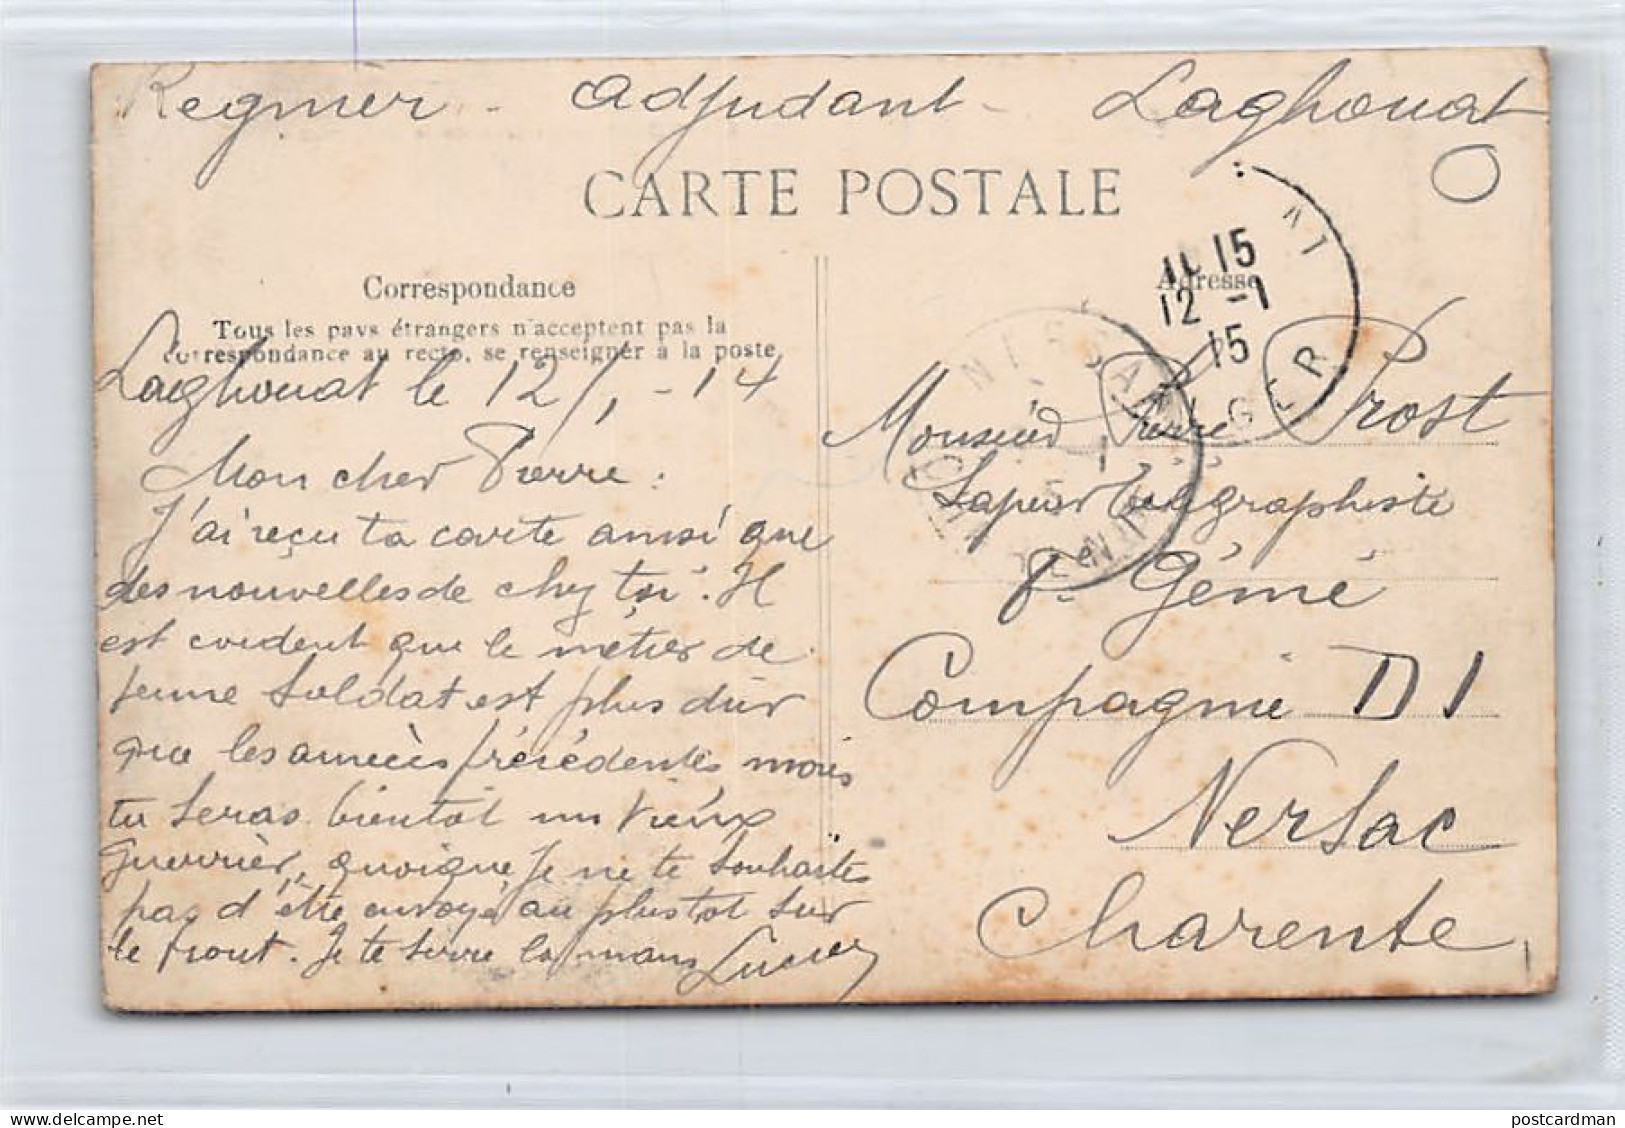 Regnier - adjudant - Laghouat
CARTE POSTALE
Correspondance
Tous les pays étrangers n'acceptent pas la
correspondance au recto, se renseigner à la poste.
Laghouat le 12/1-14
Mon cher Pierre :
J'ai reçu ta carte ainsi que
des nouvelles de chez toi. Il
est évident que le métier de
jeune soldat est plus dur
que les années précédentes mais
tu seras bientôt un vieux
guerrier, quoique je ne te souhaite
pas d'être envoyé au plus tôt sur
le front. Je te serre la main
Adresse
Monsieur Pierre Prost
Sapeur Télégraphiste
8e Génie
Compagnie D1
Nersac
Charente
15
12 -1
15
ALGER
NERSAC
postcardman